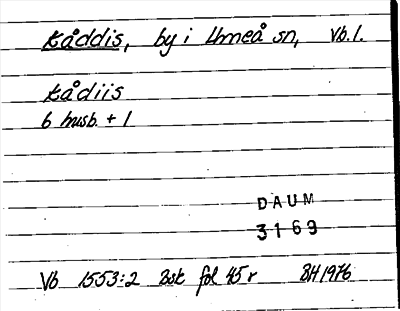 Kåddis, by i Umeå sn, Vb.l.
Kådiis
6 husb. + 1
DAUM
3169
Vb 1553:2 Bsk fol 45 r BH 1976